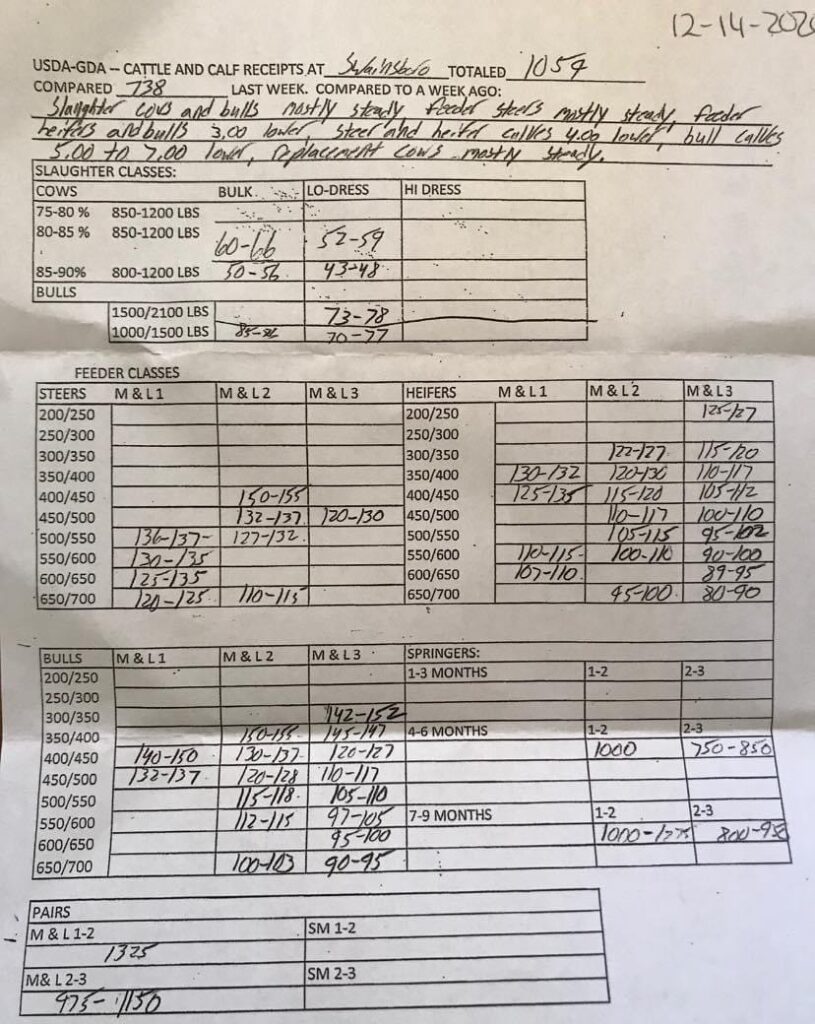 12-14-202
USDA-GDA -- CATTLE AND CALF RECEIPTS AT Swainsboro TOTALED 1054
COMPARED 738 LAST WEEK. COMPARED TO A WEEK AGO:
Slaughter cows and bulls mostly steady feeder steers mostly steady, feeder
heifers and bulls 3.00 lower, steer and heifer calves 4.00 lower, bull calves
5.00 to 7.00 lower, replacement cows mostly steady.
SLAUGHTER CLASSES:
COWS BULK LO-DRESS HI DRESS
75-80 % 850-1200 LBS
80-85 % 850-1200 LBS 60-66 52-59
85-90% 800-1200 LBS 50-56 43-48
BULLS
1500/2100 LBS 73-78
1000/1500 LBS 70-77
FEEDER CLASSES
STEERS M & L 1 M & L 2 M & L 3 HEIFERS M & L 1 M & L 2 M & L 3
200/250 200/250 125-127
250/300 250/300
300/350 300/350 122-127 115-120
350/400 350/400 130-132 120-130 110-117
400/450 150-155 400/450 125-135 115-120 105-112
450/500 132-137 120-130 450/500 110-117 100-110
500/550 136-137- 127-132 500/550 105-115 95-102
550/600 130-135 550/600 110-115- 100-110 90-100
600/650 125-135 600/650 107-110 89-95
650/700 120-125 110-115 650/700 95-100 80-90
BULLS M & L 1 M & L 2 M & L 3 SPRINGERS:
200/250 1-3 MONTHS 1-2 2-3
250/300
300/350 142-152
350/400 150-155 145-147 4-6 MONTHS 1-2 2-3
400/450 140-150 130-137 120-127 1000 750-850
450/500 132-137 120-128 110-117
500/550 115-118 105-110
550/600 112-115 97-105 7-9 MONTHS 1-2 2-3
600/650 95-100 1000-1275 800-950
650/700 100-103 90-95
PAIRS
M & L 1-2 SM 1-2
1325
M& L 2-3 SM 2-3
975-1150